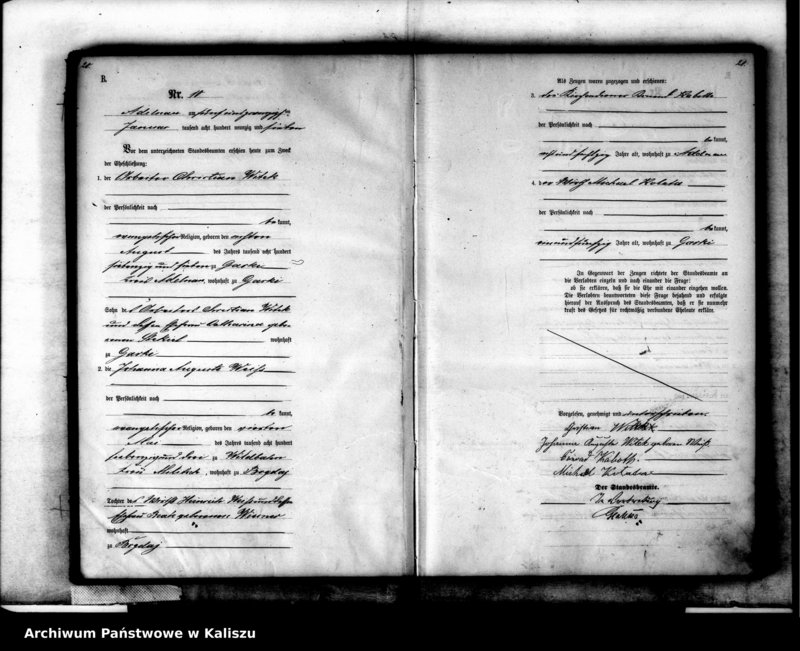 B.
Nr. 11
Adelnau am fünf und zwanzigsten
Januar tausend acht hundert neunzig und sieben
Vor dem unterzeichneten Standesbeamten erschien heute zum Zweck
der Eheschließung:
1. der Arbeiter Christian Witek
der Persönlichkeit nach
be kannt,
evangelischer Religion, geboren den ersten
August des Jahres tausend acht hundert
siebenzig und sieben zu Garki
Kreis Adelnau, wohnhaft zu Garki
Sohn des Arbeiters Christian Witek
und dessen Ehefrau Katharina gebo-
renen wohnhaft
zu Garki
2. die Johanna Auguste Weiß
der Persönlichkeit nach
be kannt,
evangelischer Religion, geboren den vierten
Mai des Jahres tausend acht hundert
siebenzig und drei zu Wildbahn
Kreis Militsch, wohnhaft zu Bogdaj
Tochter des Wirths Heinrich Weiß und dessen
Ehefrau Beate geborenen Wiesner
wohnhaft
zu Bogdaj
Als Zeugen waren zugezogen und erschienen:
3. der Kirchendiener Kaboth
der Persönlichkeit nach
be kannt,
und sechszig Jahre alt, wohnhaft zu Adelnau
4. der Wirth Michael
der Persönlichkeit nach
be kannt,
ein und fünfzig Jahre alt, wohnhaft zu Garki
In Gegenwart der Zeugen richtete der Standesbeamte an
die Verlobten einzeln und nach einander die Frage:
ob sie erklären, daß sie die Ehe mit einander eingehen wollen.
Die Verlobten beantworteten diese Frage bejahend und erfolgte
hierauf der Ausspruch des Standesbeamten, daß er sie nunmehr
kraft des Gesetzes für rechtmäßig verbundene Eheleute erkläre.
Vorgelesen, genehmigt und unterschrieben
Christian Witek
Johanna Auguste Witek geboren Weiß
Kaboth
Michael
Der Standesbeamte.
In Vertretung
Archiwum Państwowe w Kaliszu